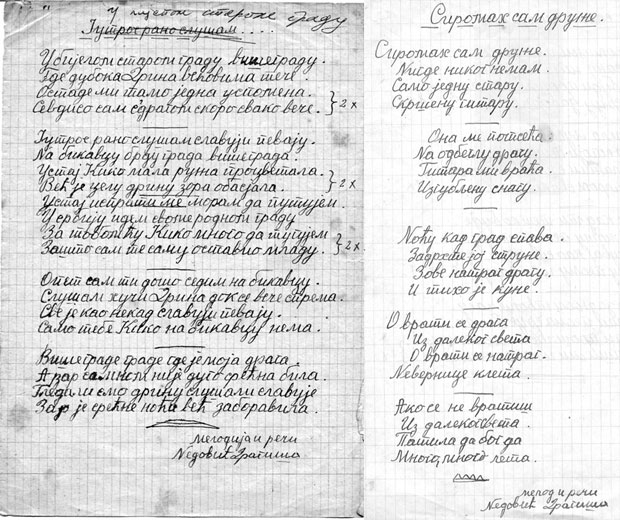 У лијепом старом граду
Јутрос рано слушам....
У бијелом старом граду вишеграду.
Где дубока Дрина вековима тече.
Остаде ми тамо једна успомена.
Севдисо сам с драгом скоро свако вече. } 2 x
Јутрос рано слушам славуји певају.
На бикавцу брду града вишеграда.
Устај Кико мала ружа процветала.
Већ је целу дрину зора обасјала. } 2 x
Устај испрати ме морам да путујем.
У србију идем своме родном граду
За тобом ћу Кико много да тугујем
Зашто сам те саму оставио младу. } 2 x
Опет сам ти дошо седим на бикавцу.
Слушам хучи Дрина док се вече спрема.
Све је као некад славуји певају.
Само тебе Кико на бикавцу нема.
Вишеграде граде где је моја драга.
А зар самном није дуго срећна била.
Гледили смо дрину слушали славује
Зар је срећне ноћи већ заборавила.
мелодија и речи
Недовић Драгиша
Сиромах сам друже.
Сиромах сам друже.
Нигде никог немам.
Само једну стару.
Скршену гитару.
Она ме потсећа
На одбеглу драгу.
Гитара ми враћа
Изгубљену снагу.
Ноћу кад град спава.
Задрхте јој струне.
Зове натраг драгу.
И тихо је куне.
О врати се драга
Из далеког света
О врати се натраг.
Невернице клета.
Ако се не вратиш
Из далеког света.
Патила да бог да
Много, много лета.
мелод и речи
Недовић Драгиша